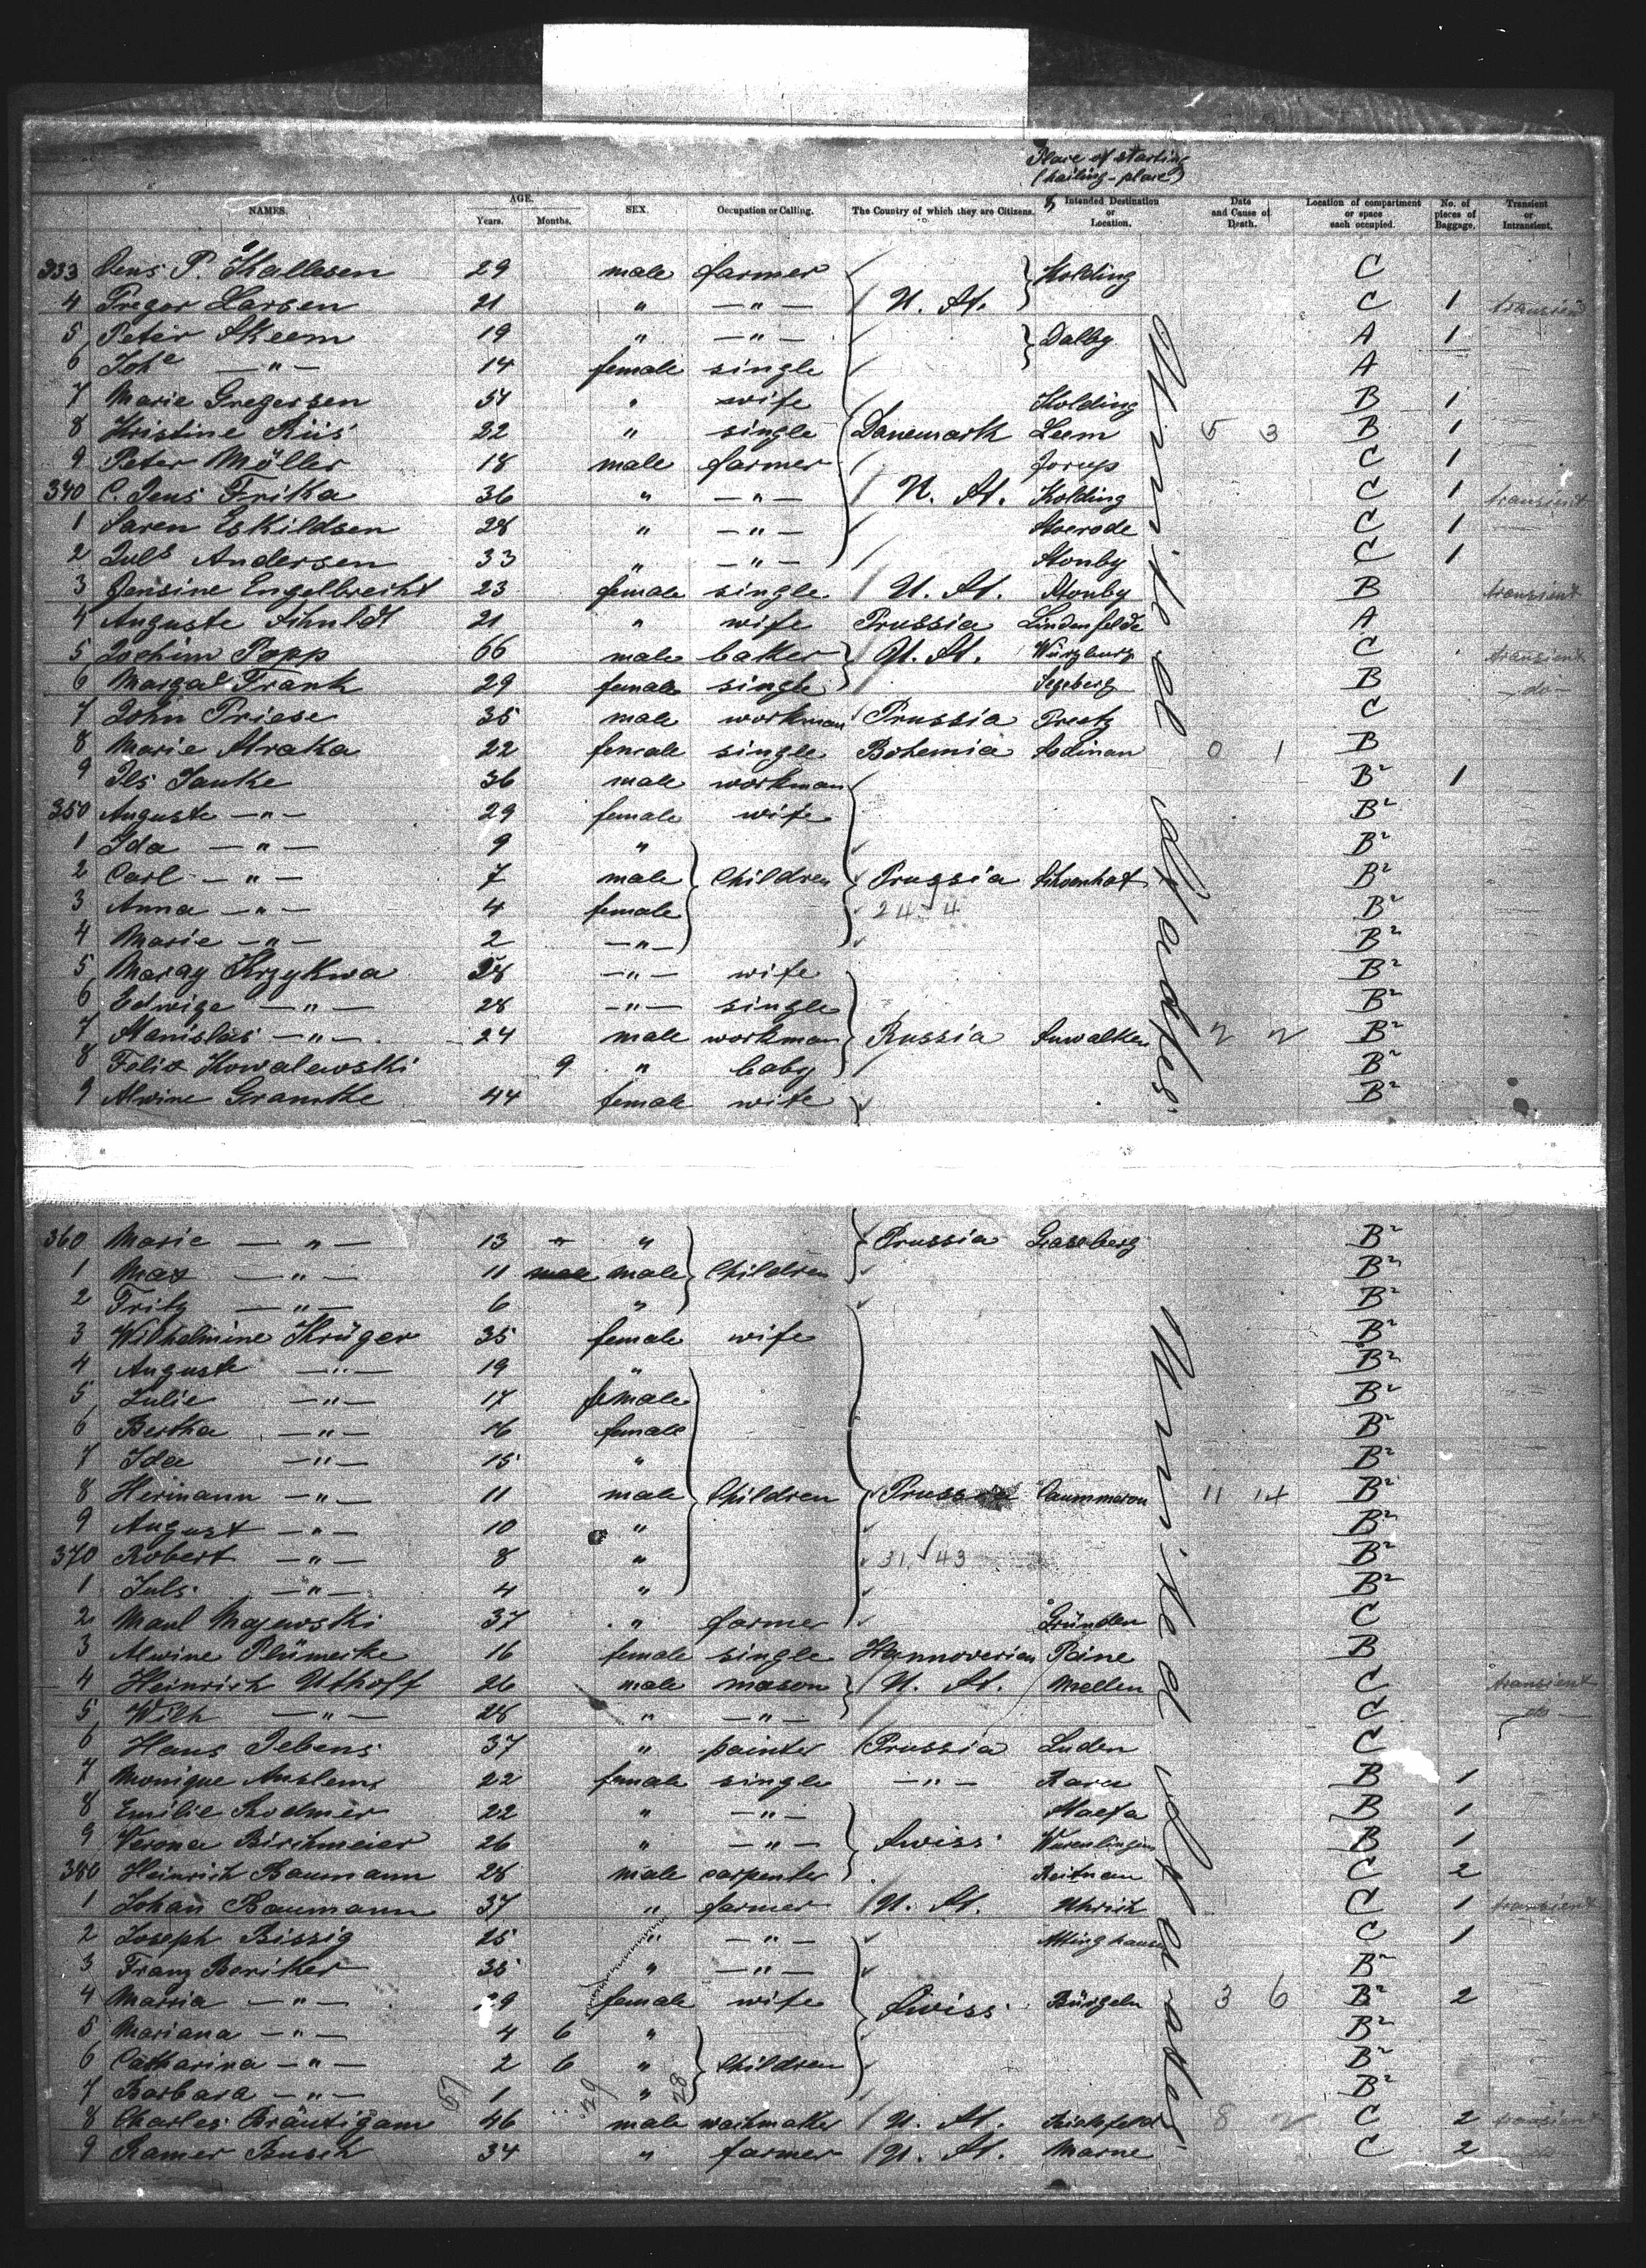 Place of starting
(hailing-place)
NAMES. AGE. Years. Months. SEX. Occupation or Calling. The Country of which they are Citizens. & Intended Destination or Location. Date and Cause of Death. Location of compartment or space each occupied. No. of pieces of Baggage. Transient or Intransient.
333 Jens P. Kallesen 29 male farmer Kolding C
4 Gregor Larsen 21 " —"— U. St. C 1 transient
5 Peter Skeem 19 " —"— Dalby A 1
6 Joh —"— 14 female single A
7 Marie Gregersen 54 " wife Kolding B 1
8 Kristine Riis 22 " single Danemark Leem 5 3 B 1
9 Peter Möller 18 male farmer Jorup C 1
340 C. Jens Frika 36 " —"— U. St. Kolding C 1 transient
1 Saren Eskildsen 28 " —"— Storode C 1
2 Juls Andersen 33 " —"— Stonby C 1
3 Jensine Engelbrecht 23 female single U. St. Stonby B transient
4 Auguste 21 " wife Prussia Lindenfelde A
5 Jochim Popp 66 male baker U. St. Würzburg C transient
6 Margal Frank 29 female single Segeberg B —do—
7 John Priese 35 male workman Prussia Preetz C
8 Marie Straka 22 female single Bohemia Sodinan 0 1 B
9 Ils Janke 36 male workman B² 1
350 Auguste —"— 29 female wife B²
1 Ida —"— 9 " B²
2 Carl —"— 7 male Children Prussia Schoenhof B²
3 Anna —"— 4 female 24 4 B²
4 Marie —"— 2 —"— B²
5 Maray Krzykwa 28 —"— wife B²
6 Edwige —"— 28 —"— single B²
7 Stanislas —"— 24 male workman Russia Suwalken 2 2 B²
8 Felix Kowalewski 9 " baby B²
9 Alwine Gramtke 44 female wife B²
Winniked St ates.
360 Marie —"— 13 " " Prussia Graseberg B²
1 Max —"— 11 male male Children B²
2 Fritz —"— 6 " B²
3 Wilhelmine Krüger 35 female wife B²
4 Auguste —"— 19 " B²
5 Julie —"— 17 female B²
6 Bertha —"— 16 female B²
7 Ida —"— 15 " B²
8 Hermann —"— 11 male Children Prussia Caummerou 11 14 B²
9 August —"— 10 " B²
370 Robert —"— 8 " 31 43 B²
1 Juls —"— 4 " B²
2 Maul Majewski 37 " farmer Gründen C
3 Alwine Plümeike 16 female single Hannoverian Päine B
4 Heinrich Uthoff 26 male mason U. St. Mellen C transient
5 Wilh —"— 28 " —"— C —do—
6 Hans Jebens 37 " painter Prussia Luden C
7 Monique Anslems 22 female single —"— B 1
8 Emilie Bodmer 22 " —"— Staefa B 1
9 Verona Birchmeier 26 " —"— Swiss Würenlingen B 1
380 Heinrich Baumann 28 male carpenter Reitnau C 2
1 Johan Baumann 37 " farmer U. St. Uhrich C 1 transient
2 Joseph Bissig 25 " —"— Attinghausen C 1
3 Franz Beriker 35 " —"— B²
4 Maria —"— 29 female wife Swiss Bürgeln 3 6 B² 2
5 Mariana —"— 4 6 " B²
6 Catharina —"— 2 6 " Children B²
7 Barbara —"— 1 " B²
57 29 28
8 Charles Bräutigam 46 male watchmaker U. St. Bielefeld 8 2 C 2 transient
9 Ramer Busch 34 " farmer U. St. Marne C 2